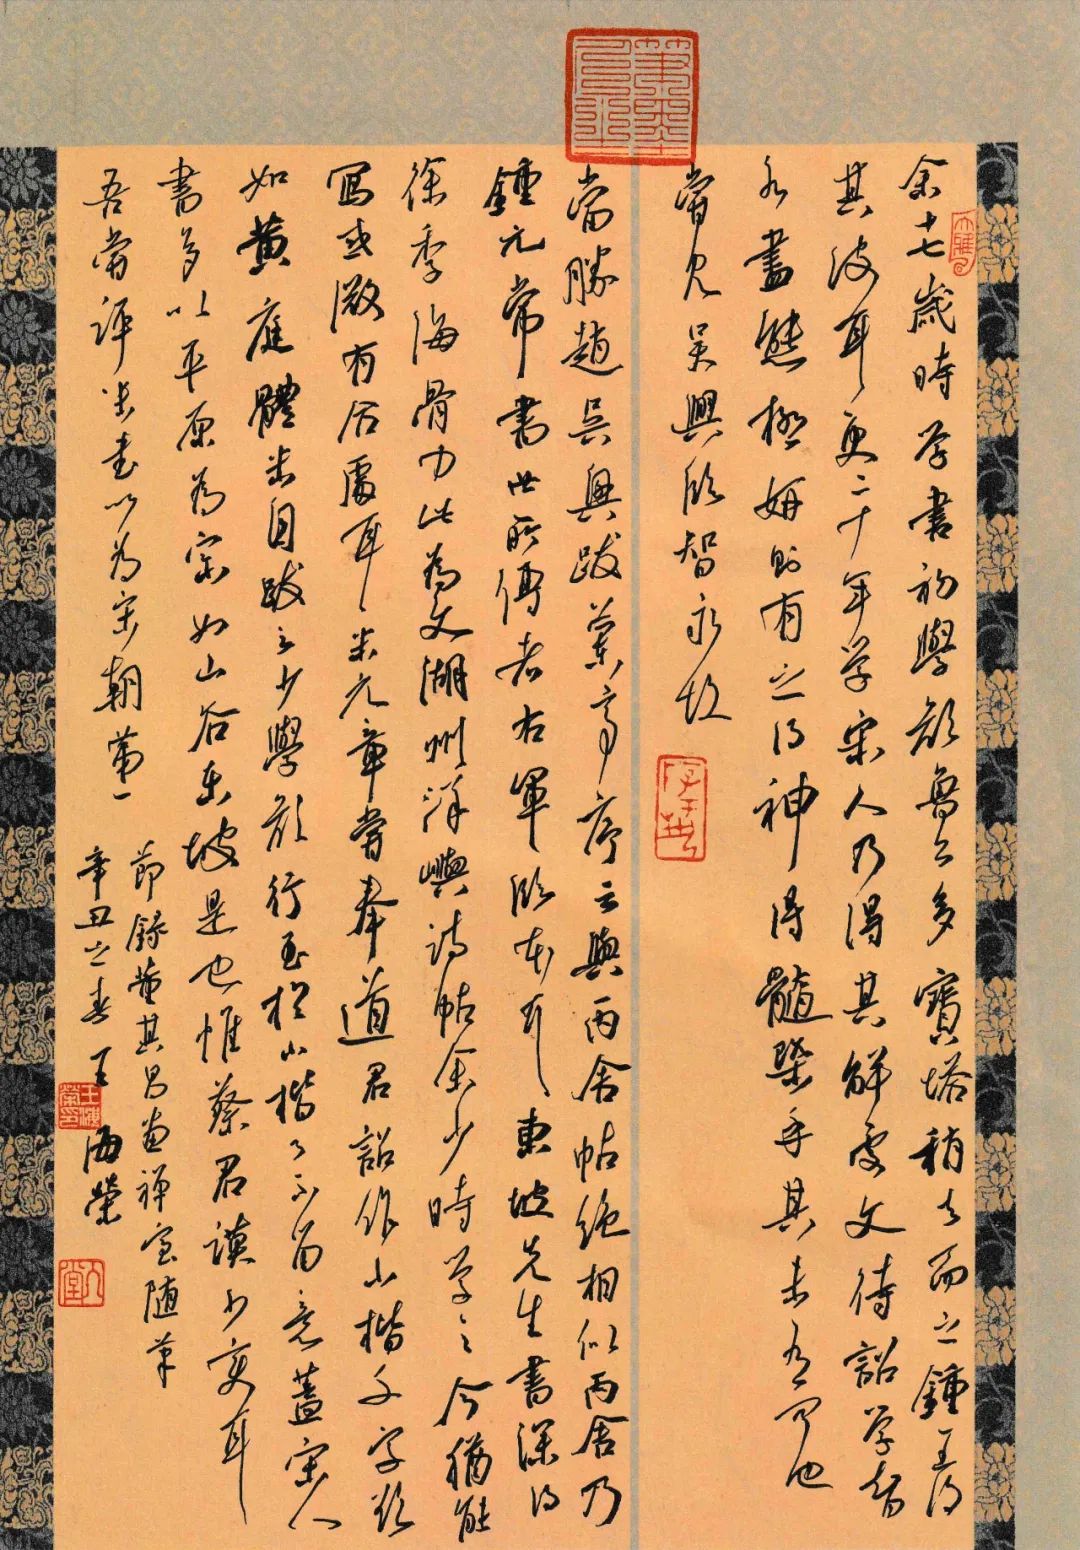 余十七歲時学書初學顔魯公多寶塔稍去而之鍾王得
其波耳更二十年学宋人乃得其解處文待詔学智
永書態極妍則有之得神得髓槩乎其未有聞也
嘗見吳興臨智永故
當勝趙吳興跋蘭亭序云與丙舍帖絶相似丙舍乃
鍾元常書世所傳者右軍臨本耳東坡先生書深得
徐季海骨力此為文湖州洋嶼詩帖余少時学之今猶能
寫或微有合處耳米元章嘗奉道君詔作小楷千字欲
如黄庭體米自跋云少學顔行至於小楷了不留意蓋宋人
書多以平原為宗如山谷東坡是也惟蔡君謨少變耳
吾嘗評米書以為宋朝第一
節錄董其昌畫禪室随筆
辛丑之春王海榮